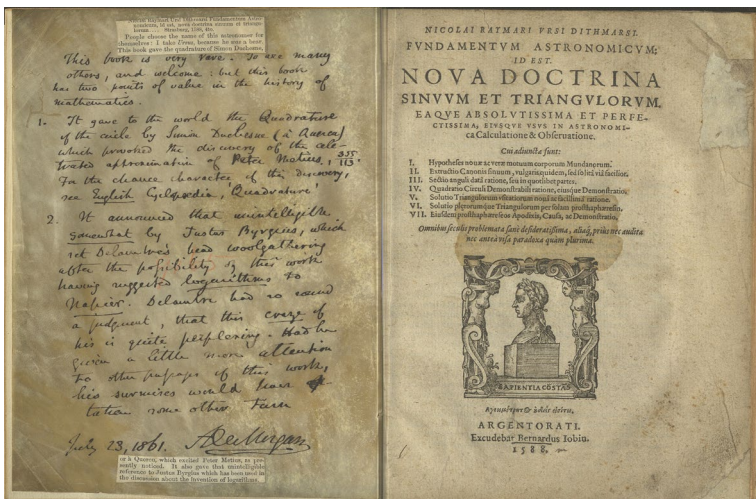 Nicolai Raymari Ursi Dithmarsi Fundamentum Astro-
nomicum, id est, nova doctrina sinuum et triangu-
lorum.... Strasburg, 1588, 4to.
People choose the name of this astronomer for
themselves: I take Ursus, because he was a bear.
This book gave the quadrature of Simon Duchesne,
This book is very rare. So are many
others, and welcome: but this book
has two points of value in the history of
mathematics.
1. It gave to the world the Quadrature
of the circle by Simon Duchesne (à Quercu)
which provoked the discovery of the cele-
brated approximation of Peter Metius, 355/113.
For the chance character of this discovery,
see English Cyclopædia, 'Quadrature'
2. It announced that unintelligible
somewhat by Justus Byrgius, which
set Delambre's head woolgathering
after the possibility of this work
having suggested logarithms to
Napier. Delambre had so sound
a judgment, that this craze of
his is quite perplexing. Had he
given a little more attention
to other passages of this work,
his surmises would have
taken some other turn
July 23, 1861. ADeMorgan
or à Quercu, which excited Peter Metius, as pre-
sently noticed. It also gave that unintelligible
reference to Justus Byrgius which has been used in
the discussion about the invention of logarithms.
NICOLAI RAYMARI VRSI DITHMARSI
FVNDAMENTVM ASTRONOMICVM;
ID EST.
NOVA DOCTRINA
SINVVM ET TRIANGVLORVM.
EAQVE ABSOLVTISSIMA ET PERFE-
CTISSIMA, EIVSQVE VSVS IN ASTRONOMI-
ca Calculatione & Observatione.
Cui adiuncta sunt:
I. Hypotheses novæ ac veræ motuum corporum Mundanorum.
II. Extructio Canonis sinuum, vulgaris quidem, sed solita via facilior.
III. Sectio anguli data ratione, seu in quotlibet partes.
IV. Quadratio Circuli Demonstrabili ratione, eiusque Demonstratio.
V. Solutio Triangulorum
VI. Solutio plerorumque Triangulorum per solam prosthaphæresin.
VII. Eiusdem prosthaphæreseos Apodixis, Causa, ac Demonstratio.
Omnibus seculis problemata sanè desideratissima, aliàs, priùs nec audita
nec antea visa paradoxa quàm plurima.
SAPIENTIA CONSTANS
ARGENTORATI.
Excudebat Bernardus Iobin.
1588.